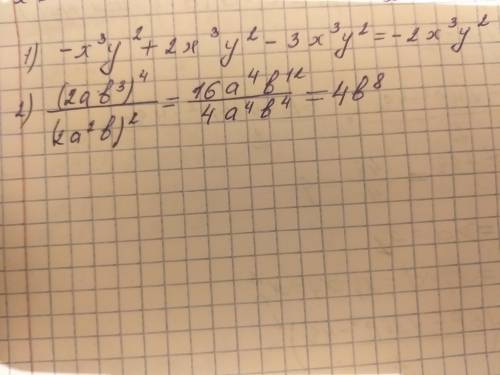 1) -x³y² + 2x³y² - 3x³y² = -2x³y²
2) (2ab³)⁴/(2a²b)² = 16a⁴b¹²/4a⁴b⁴ = 4b⁸